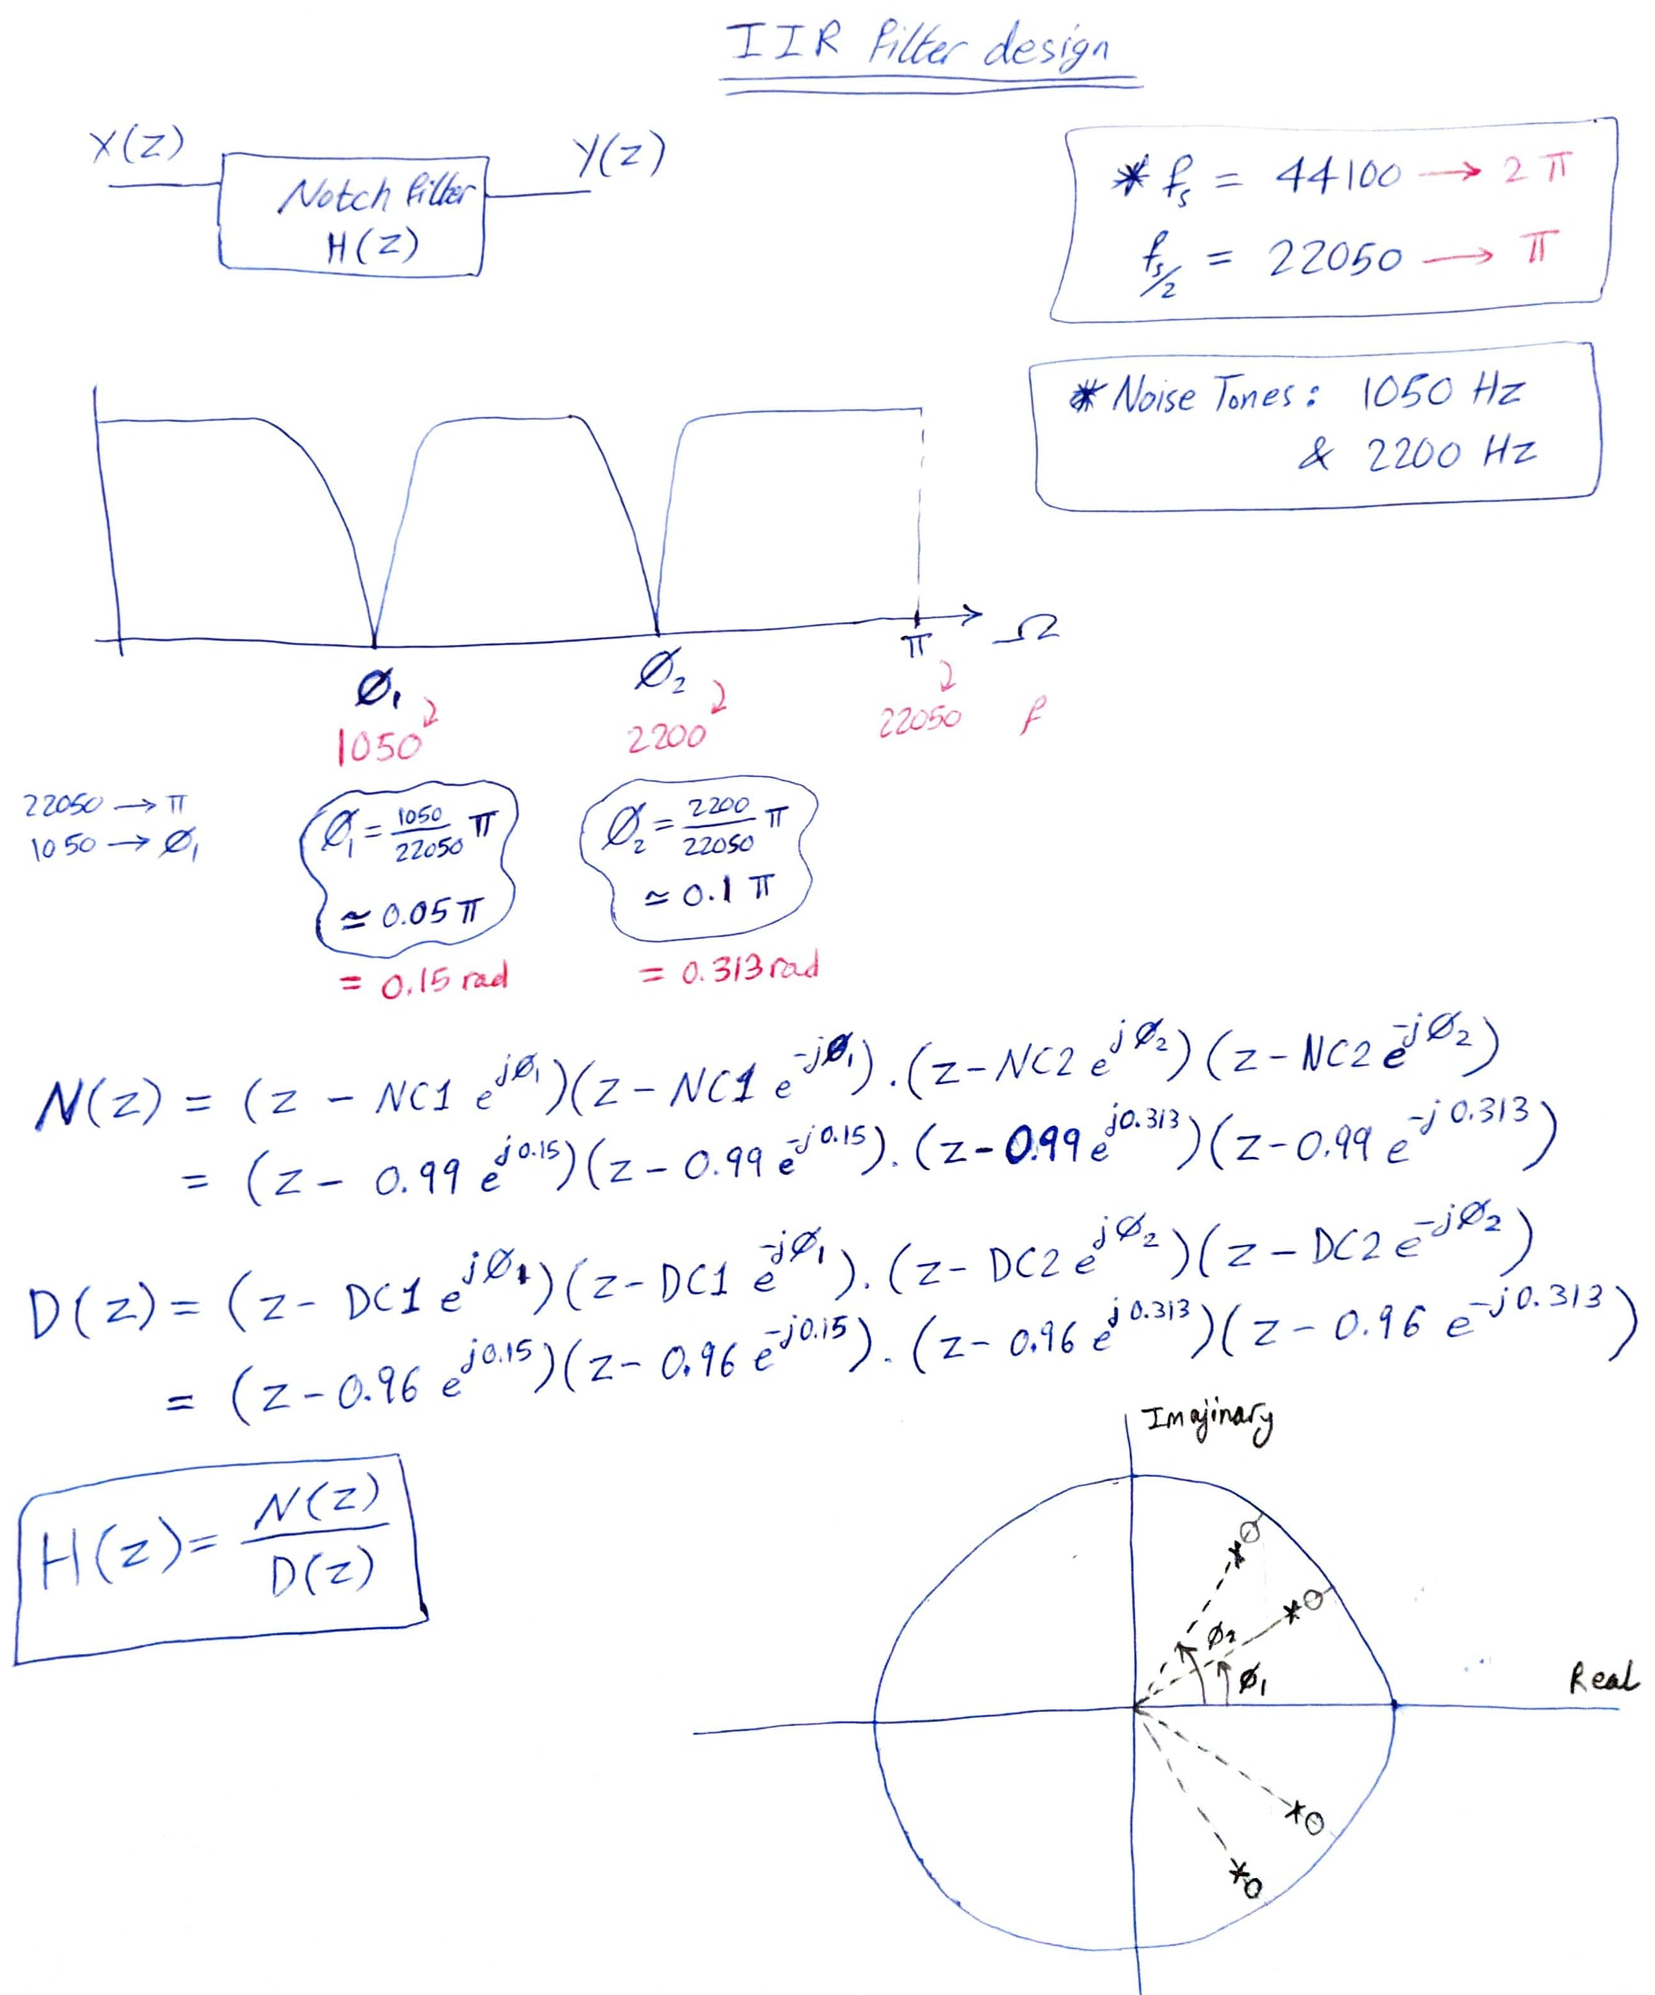 IIR filter design
X(z)
Y(z)
Notch filter
H(z)
* fs = 44100 → 2 π
fs/2 = 22050 → π
* Noise Tones: 1050 Hz
& 2200 Hz
Ø₁
Ø₂
π
Ω
1050
2200
22050
f
22050 → π
1050 → Ø₁
Ø₁ = 1050/22050 π
≃ 0.05 π
= 0.15 rad
Ø₂ = 2200/22050 π
≃ 0.1 π
= 0.313 rad
N(z) = (z - NC1 e^jØ₁)(z - NC1 e^-jØ₁).(z - NC2 e^jØ₂)(z - NC2 e^-jØ₂)
= (z - 0.99 e^j0.15)(z - 0.99 e^-j0.15).(z - 0.99 e^j0.313)(z - 0.99 e^-j0.313)
D(z) = (z - DC1 e^jØ₁)(z - DC1 e^-jØ₁).(z - DC2 e^jØ₂)(z - DC2 e^-jØ₂)
= (z - 0.96 e^j0.15)(z - 0.96 e^-j0.15).(z - 0.96 e^j0.313)(z - 0.96 e^-j0.313)
H(z) = N(z)/D(z)
Imajinary
Ø₂
Ø₁
Real